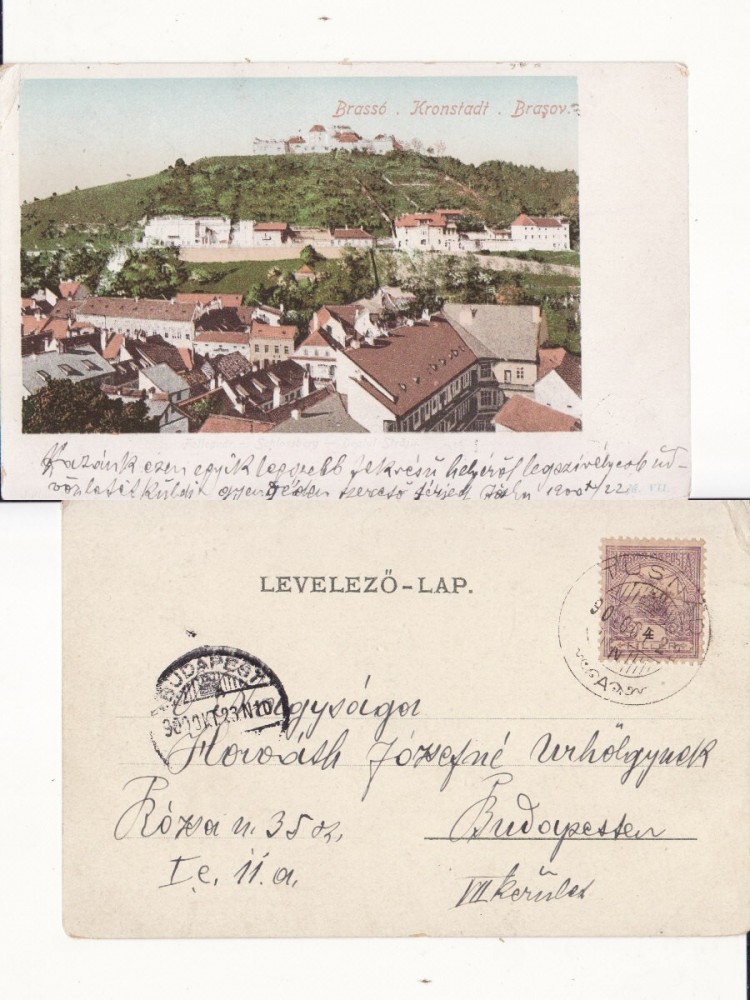 Brassó . Kronstadt . Braşov.
Hazánk ezen egyik legszebb fekvésű helyéről legszívélyesb üd-
vözletét küldi szerető férjed 1900 X/22
LEVELEZŐ-LAP.
TUSNÁD
BUDAPEST
900 OKT 23 N10
Nagysága
Horváth Józsefné Urhölgynek
Rózsa u. 35 sz.
Budapesten
I e. 11. a.
VII kerület